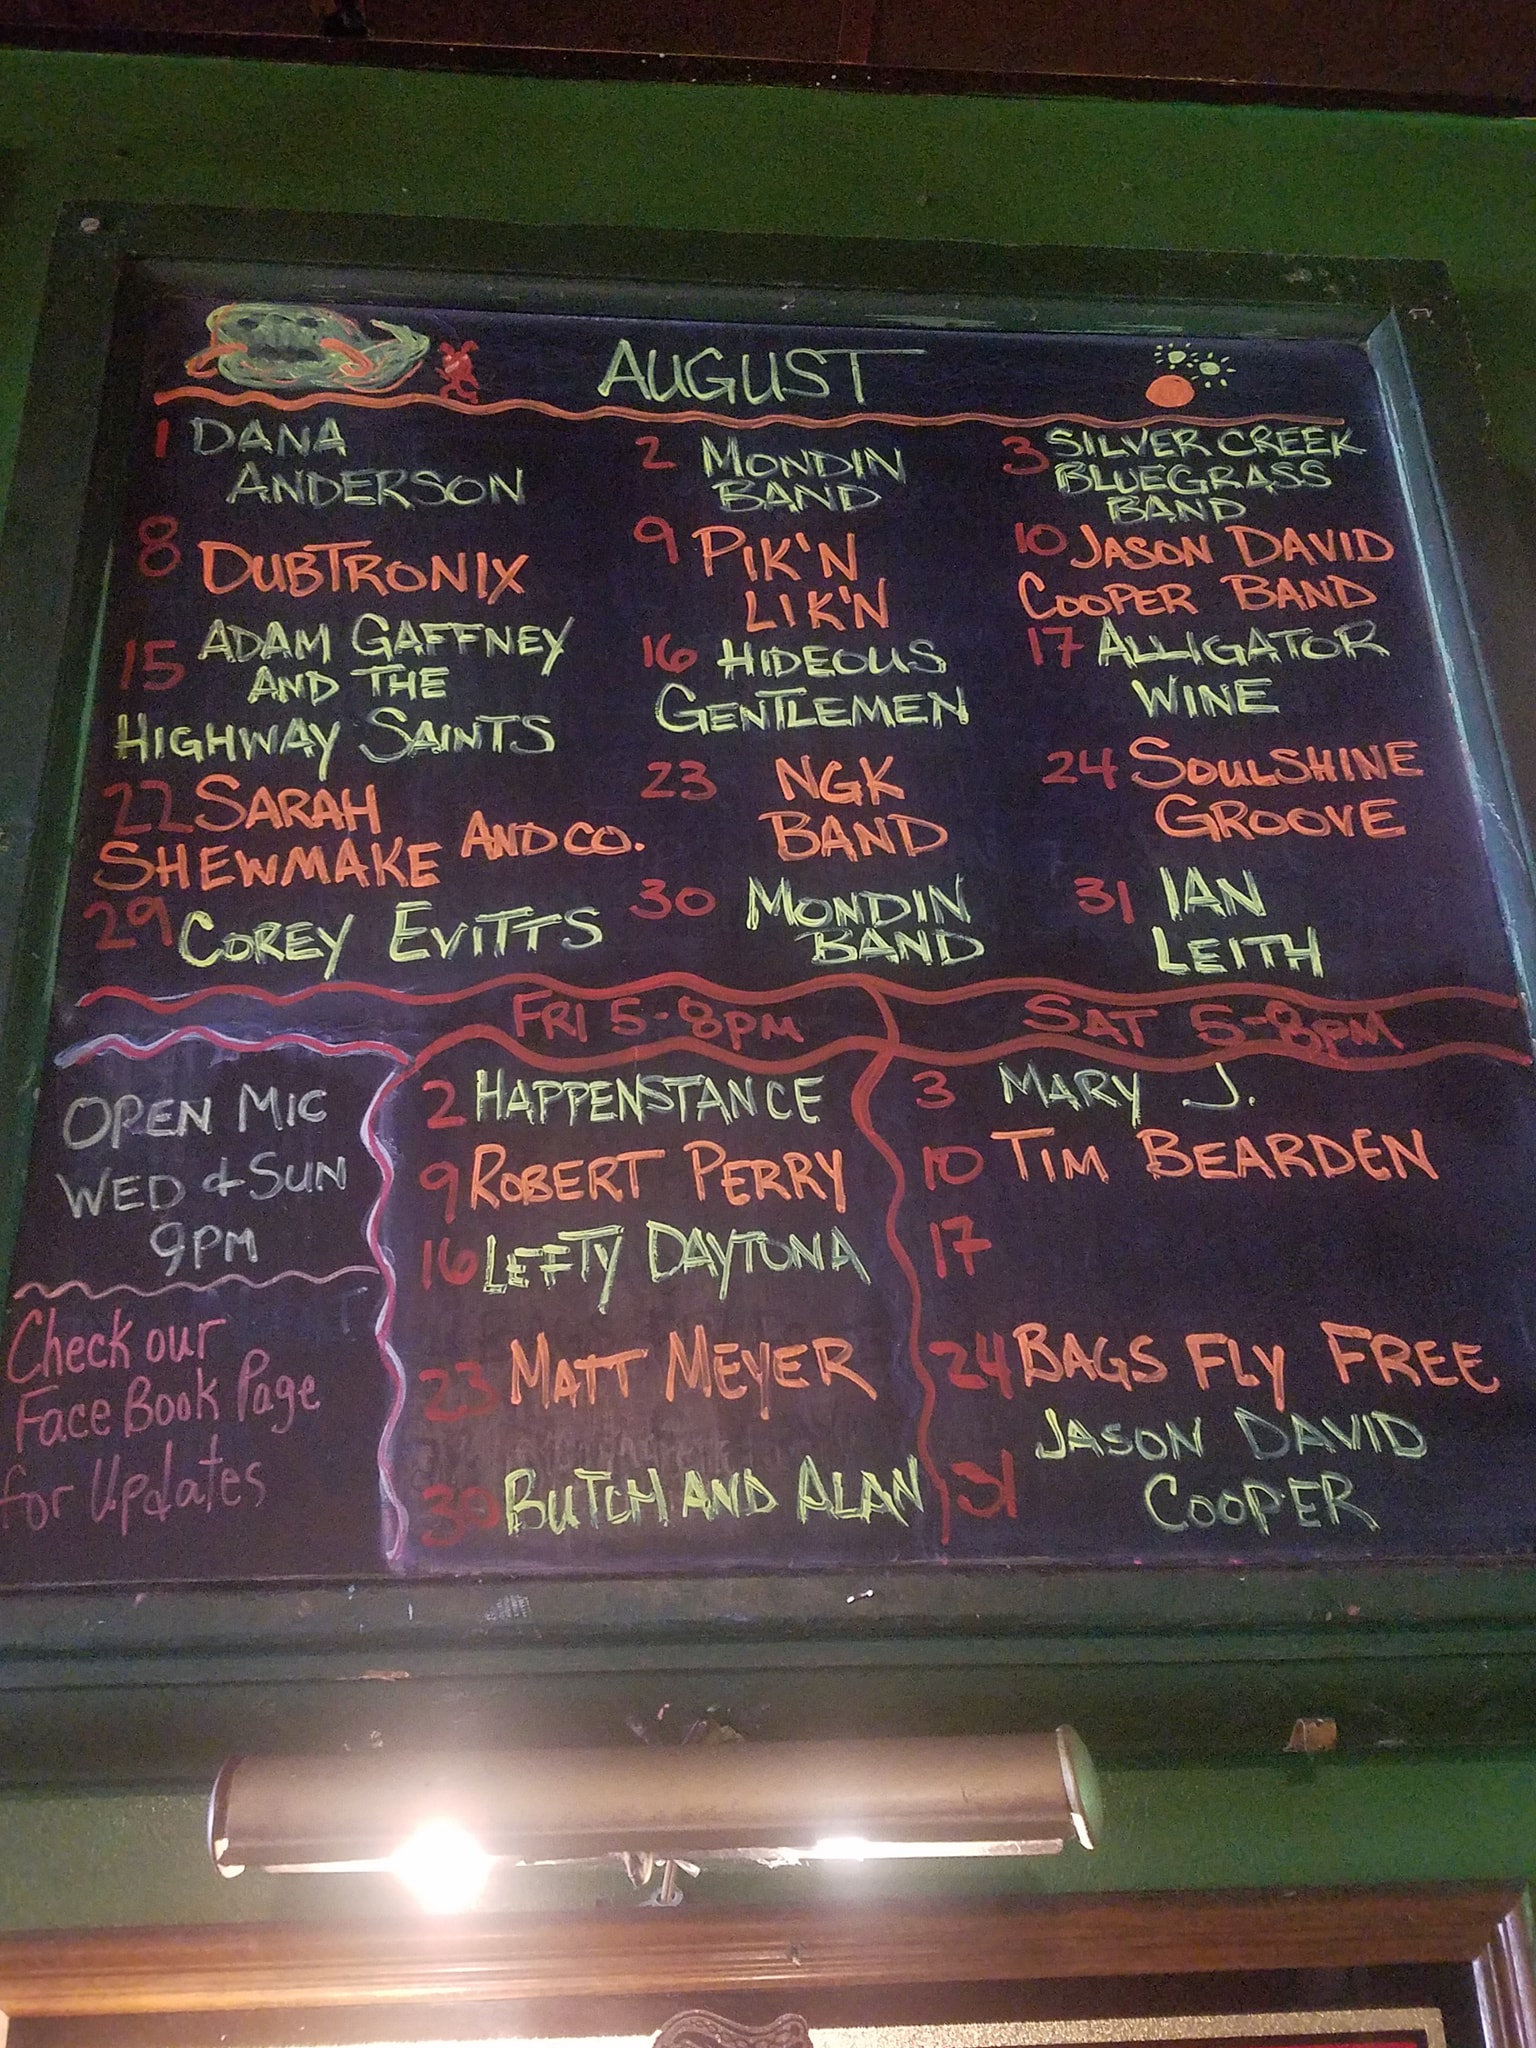 AUGUST
1 DANA
ANDERSON
2 MONDIN
BAND
3 SILVER CREEK
BLUEGRASS
BAND
8 DUBTRONIX
9 PIK'N
LIK'N
10 JASON DAVID
COOPER BAND
15 ADAM GAFFNEY
AND THE
HIGHWAY SAINTS
16 HIDEOUS
GENTLEMEN
17 ALLIGATOR
WINE
22 SARAH
SHEWMAKE AND CO.
23 NGK
BAND
24 SOULSHINE
GROOVE
29 COREY EVITTS
30 MONDIN
BAND
31 IAN
LEITH
OPEN MIC
WED & SUN
9PM
Check our
FaceBook Page
for Updates
FRI 5-8PM
2 HAPPENSTANCE
9 ROBERT PERRY
16 LEFTY DAYTONA
23 MATT MEYER
30 BUTCH AND ALAN
SAT 5-8PM
3 MARY J.
10 TIM BEARDEN
17
24 BAGS FLY FREE
31 JASON DAVID
COOPER